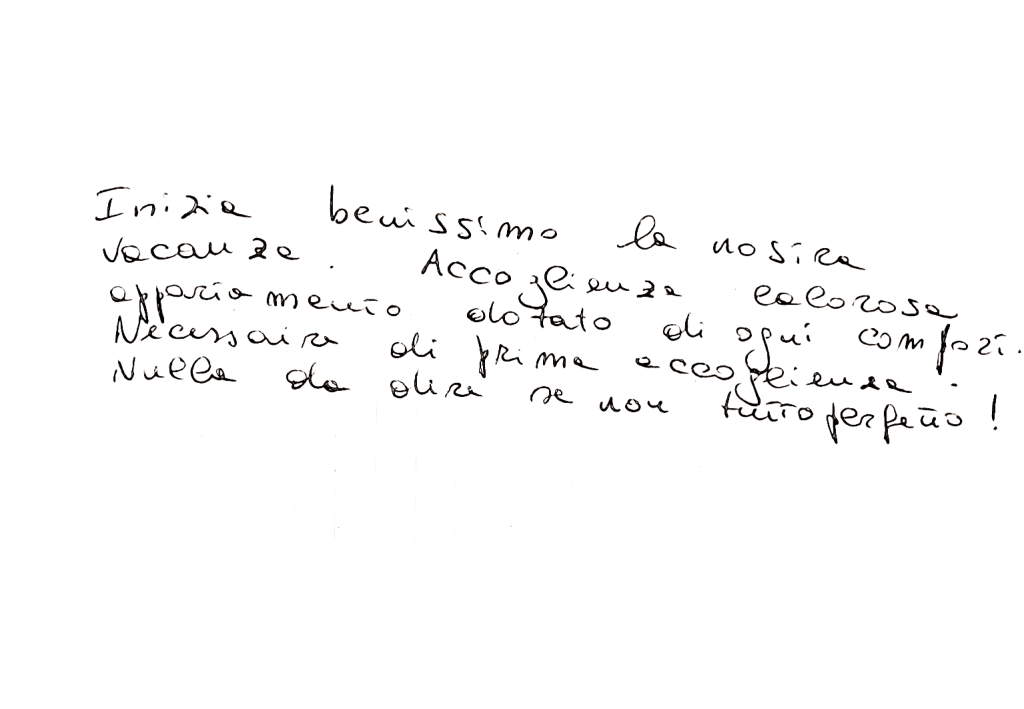 Inizia benissimo la nostra
vacanza. Accoglienza calorosa
appartamento dotato di ogni comfort.
Necessaire di prima accoglienza.
Nulla da dire se non tutto perfetto!